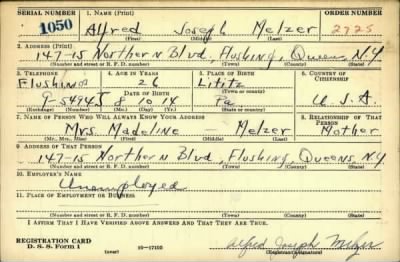 SERIAL NUMBER 1. NAME (Print) ORDER NUMBER
1050 Alfred Joseph Melzer 2725
(First) (Middle) (Last)
2. ADDRESS (Print)
147-15 Northern Blvd, Flushing, Queens, N.Y.
(Number and street or R. F. D. number) (Town) (County) (State)
3. TELEPHONE 4. AGE IN YEARS 5. PLACE OF BIRTH 6. COUNTRY OF CITIZENSHIP
Flushing 26 Lititz
DATE OF BIRTH (Town or county)
9-5494J 8 10 14 Pa U. S. A.
(Exchange) (Number) (Mo.) (Day) (Yr.) (State or country)
7. NAME OF PERSON WHO WILL ALWAYS KNOW YOUR ADDRESS 8. RELATIONSHIP OF THAT PERSON
Mrs. Madeline — Melzer Mother
(Mr., Mrs., Miss) (First) (Middle) (Last)
9. ADDRESS OF THAT PERSON
147-15 Northern Blvd, Flushing, Queens, N.Y.
(Number and street or R. F. D. number) (Town) (County) (State)
10. EMPLOYER'S NAME
Unemployed
11. PLACE OF EMPLOYMENT OR BUSINESS
(Number and street or R. F. D. number) (Town) (County) (State)
I AFFIRM THAT I HAVE VERIFIED ABOVE ANSWERS AND THAT THEY ARE TRUE.
REGISTRATION CARD
D. S. S. Form 1 (over) 16—17105 Alfred Joseph Melzer
(Registrant's signature)